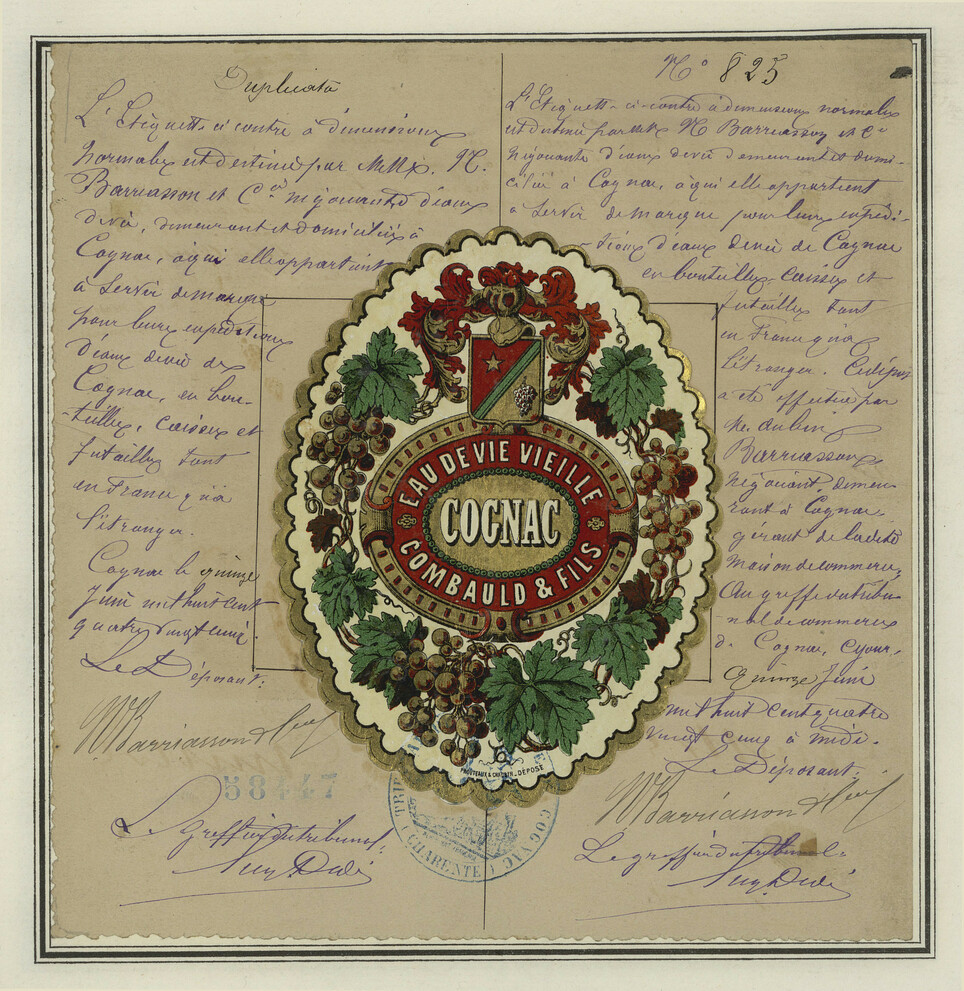 Duplicata
L'Etiquette ci contre à dimensions
normales est destinée par MM. N.
Barriasson et Cie négociants d'eaux
de vie, demeurant et domiciliés à
Cognac, à qui elle appartient
à servir de marque
pour leurs expéditions
d'eaux de vie de
Cognac, en bou-
-teilles, caisses et
futailles tant
en France qu'à
l'étranger.
Cognac le quinze
Juin mil huit cent
quatre vingt cinq.
Le Déposant:
N Barriasson &
58447
Le greffier du tribunal,
No 825
L'Etiquette ci-contre à dimensions normales
est destinée par MM. N Barriasson et Cie
négociants d'eaux de vie demeurant et domi-
ciliés à Cognac, à qui elle appartient
à servir de marque pour leurs expédi-
-tions d'eaux de vie de Cognac
en bouteilles, caisses et
futailles tant
en France qu'à
l'étranger. Ce dépôt
a été effectué par
M. Aubin
Barriasson
négociant demeu-
rant à Cognac,
gérant de la dite
maison de commerce,
Au greffe du tribu-
-nal de commerce
de Cognac, ce jour,
quinze Juin
mil huit cent quatre
vingt cinq à midi.
Le Déposant:
N Barriasson &
Le greffier du tribunal:
EAU DE VIE VIEILLE
COGNAC
COMBAULD & FILS
DÉPOSÉ
COGNAC
(CHARENTE)